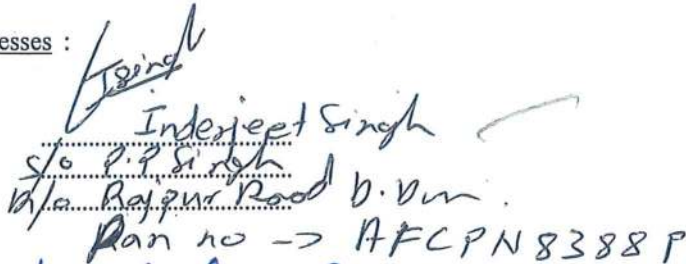 esses :
Isingh
Inderjeet Singh
S/o P.P Singh
R/o Rajpur Road D.Dun.
Pan no -> AFCPN8388P